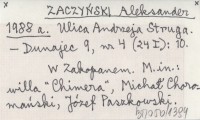 ZACZYŃSKI Aleksander
1988 a. Ulica Andrzeja Struga.
— Dunajec 9, nr 4 (24 I): 10.
W Zakopanem. M.in.:
willa "Chimera", Michał Choro-
mański, Józef Paszkowski.